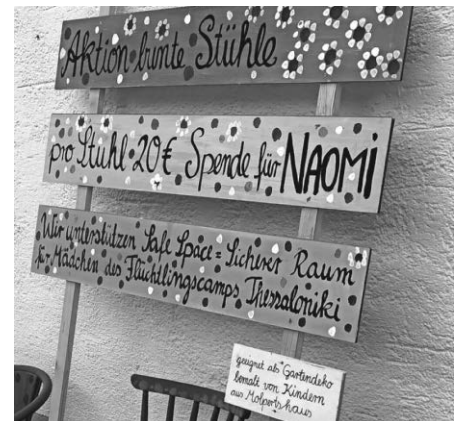 Aktion bunte Stühle
pro Stuhl 20€ Spende für NAOMI
Wir unterstützen Safe Space = Sicherer Raum
für Mädchen des Flüchtlingscamps Thessaloniki
geeignet als Gartendeko
bemalt von Kindern
aus Molpertshaus